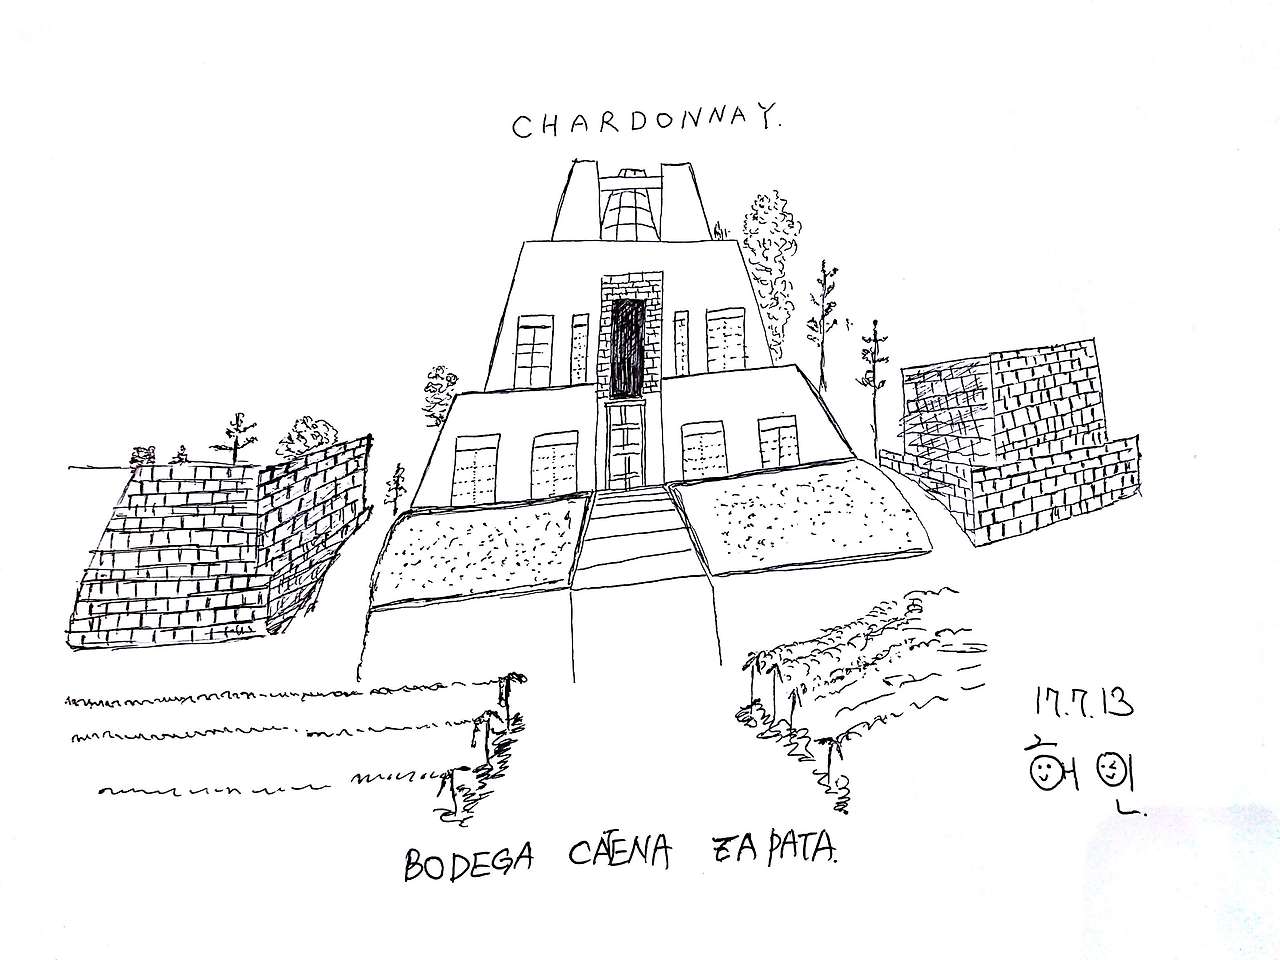 CHARDONNAY.
17.7.13
혜인.
BODEGA CATENA ZAPATA.